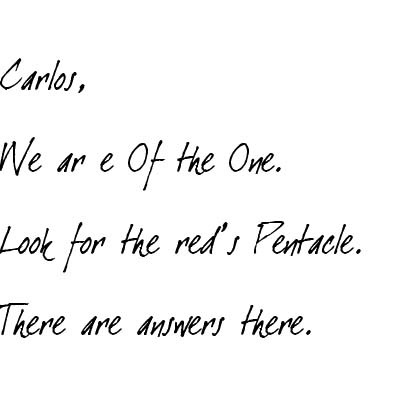 Carlos,
We ar e Of the One.
Look for the red's Pentacle.
There are answers there.